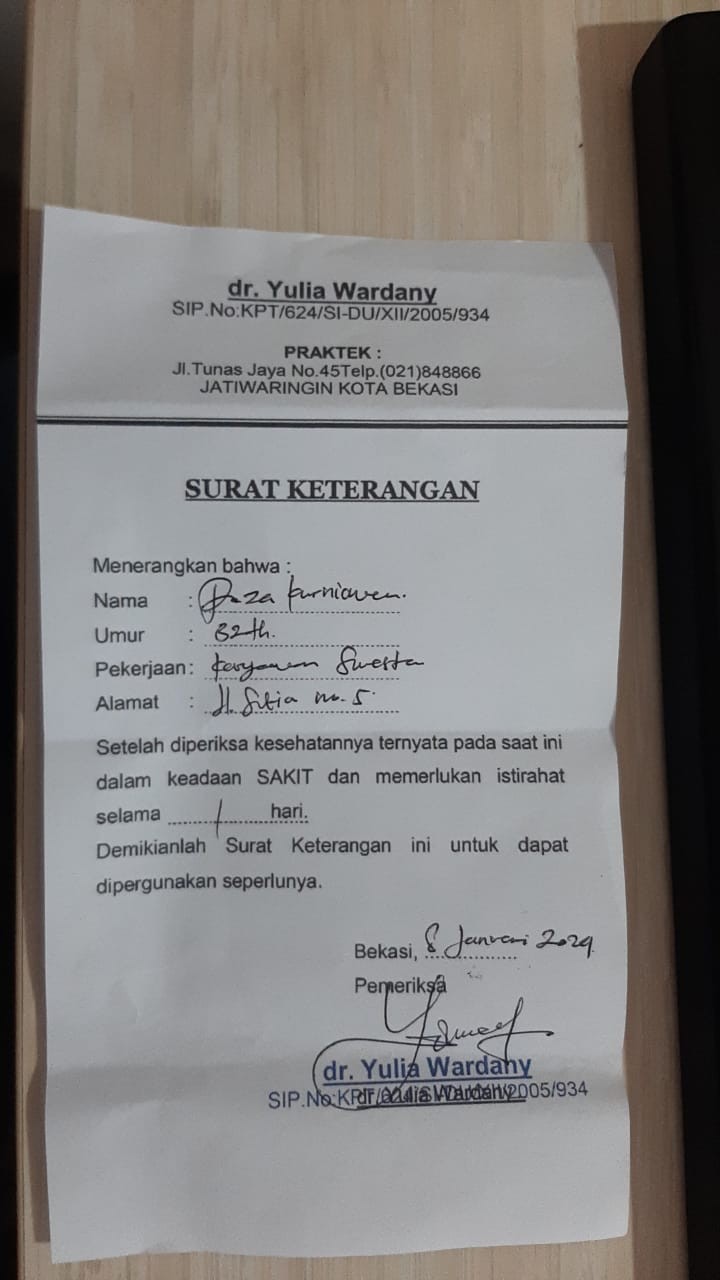 dr. Yulia Wardany
SIP.No:KPT/624/SI-DU/XII/2005/934
PRAKTEK :
Jl.Tunas Jaya No.45Telp.(021)848866
JATIWARINGIN KOTA BEKASI
SURAT KETERANGAN
Menerangkan bahwa :
Nama : Reza Kurniawan.
Umur : 32th.
Pekerjaan: Karyawan Swasta
Alamat : Jl. Setia no. 5.
Setelah diperiksa kesehatannya ternyata pada saat ini
dalam keadaan SAKIT dan memerlukan istirahat
selama 1 hari.
Demikianlah Surat Keterangan ini untuk dapat
dipergunakan seperlunya.
Bekasi, 8 Januari 2024
Pemeriksa
dr. Yulia Wardany
SIP.No:KPT/624/SI-DU/XII/2005/934
dr. Yulia Wardany